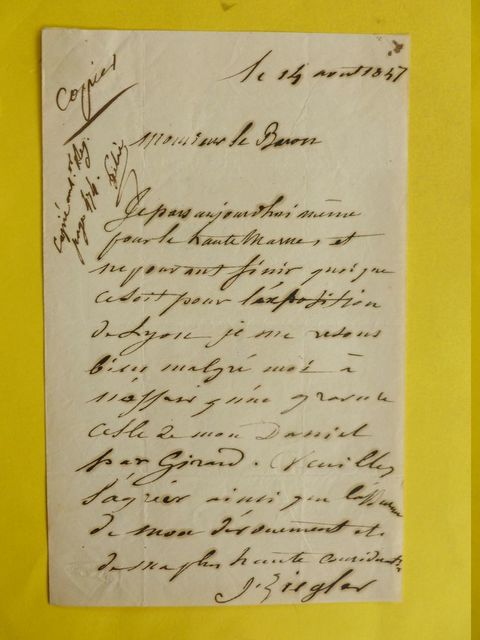 le 14 aout 1847
Copier
Copié au Reg.
page 474.
Monsieur le Baron
Je pars aujourdhui même
pour la haute Marne, et
ne pouvant finir quoique
ce soit pour l'exposition
de Lyon je me resous
bien malgré moi à
n'offrir qu'une gravure
celle de mon Daniel
par Girard. Veuillez
l'agréer ainsi que l'assurance
de mon dévouement et
de ma plus haute considérat.n
J. Ziegler